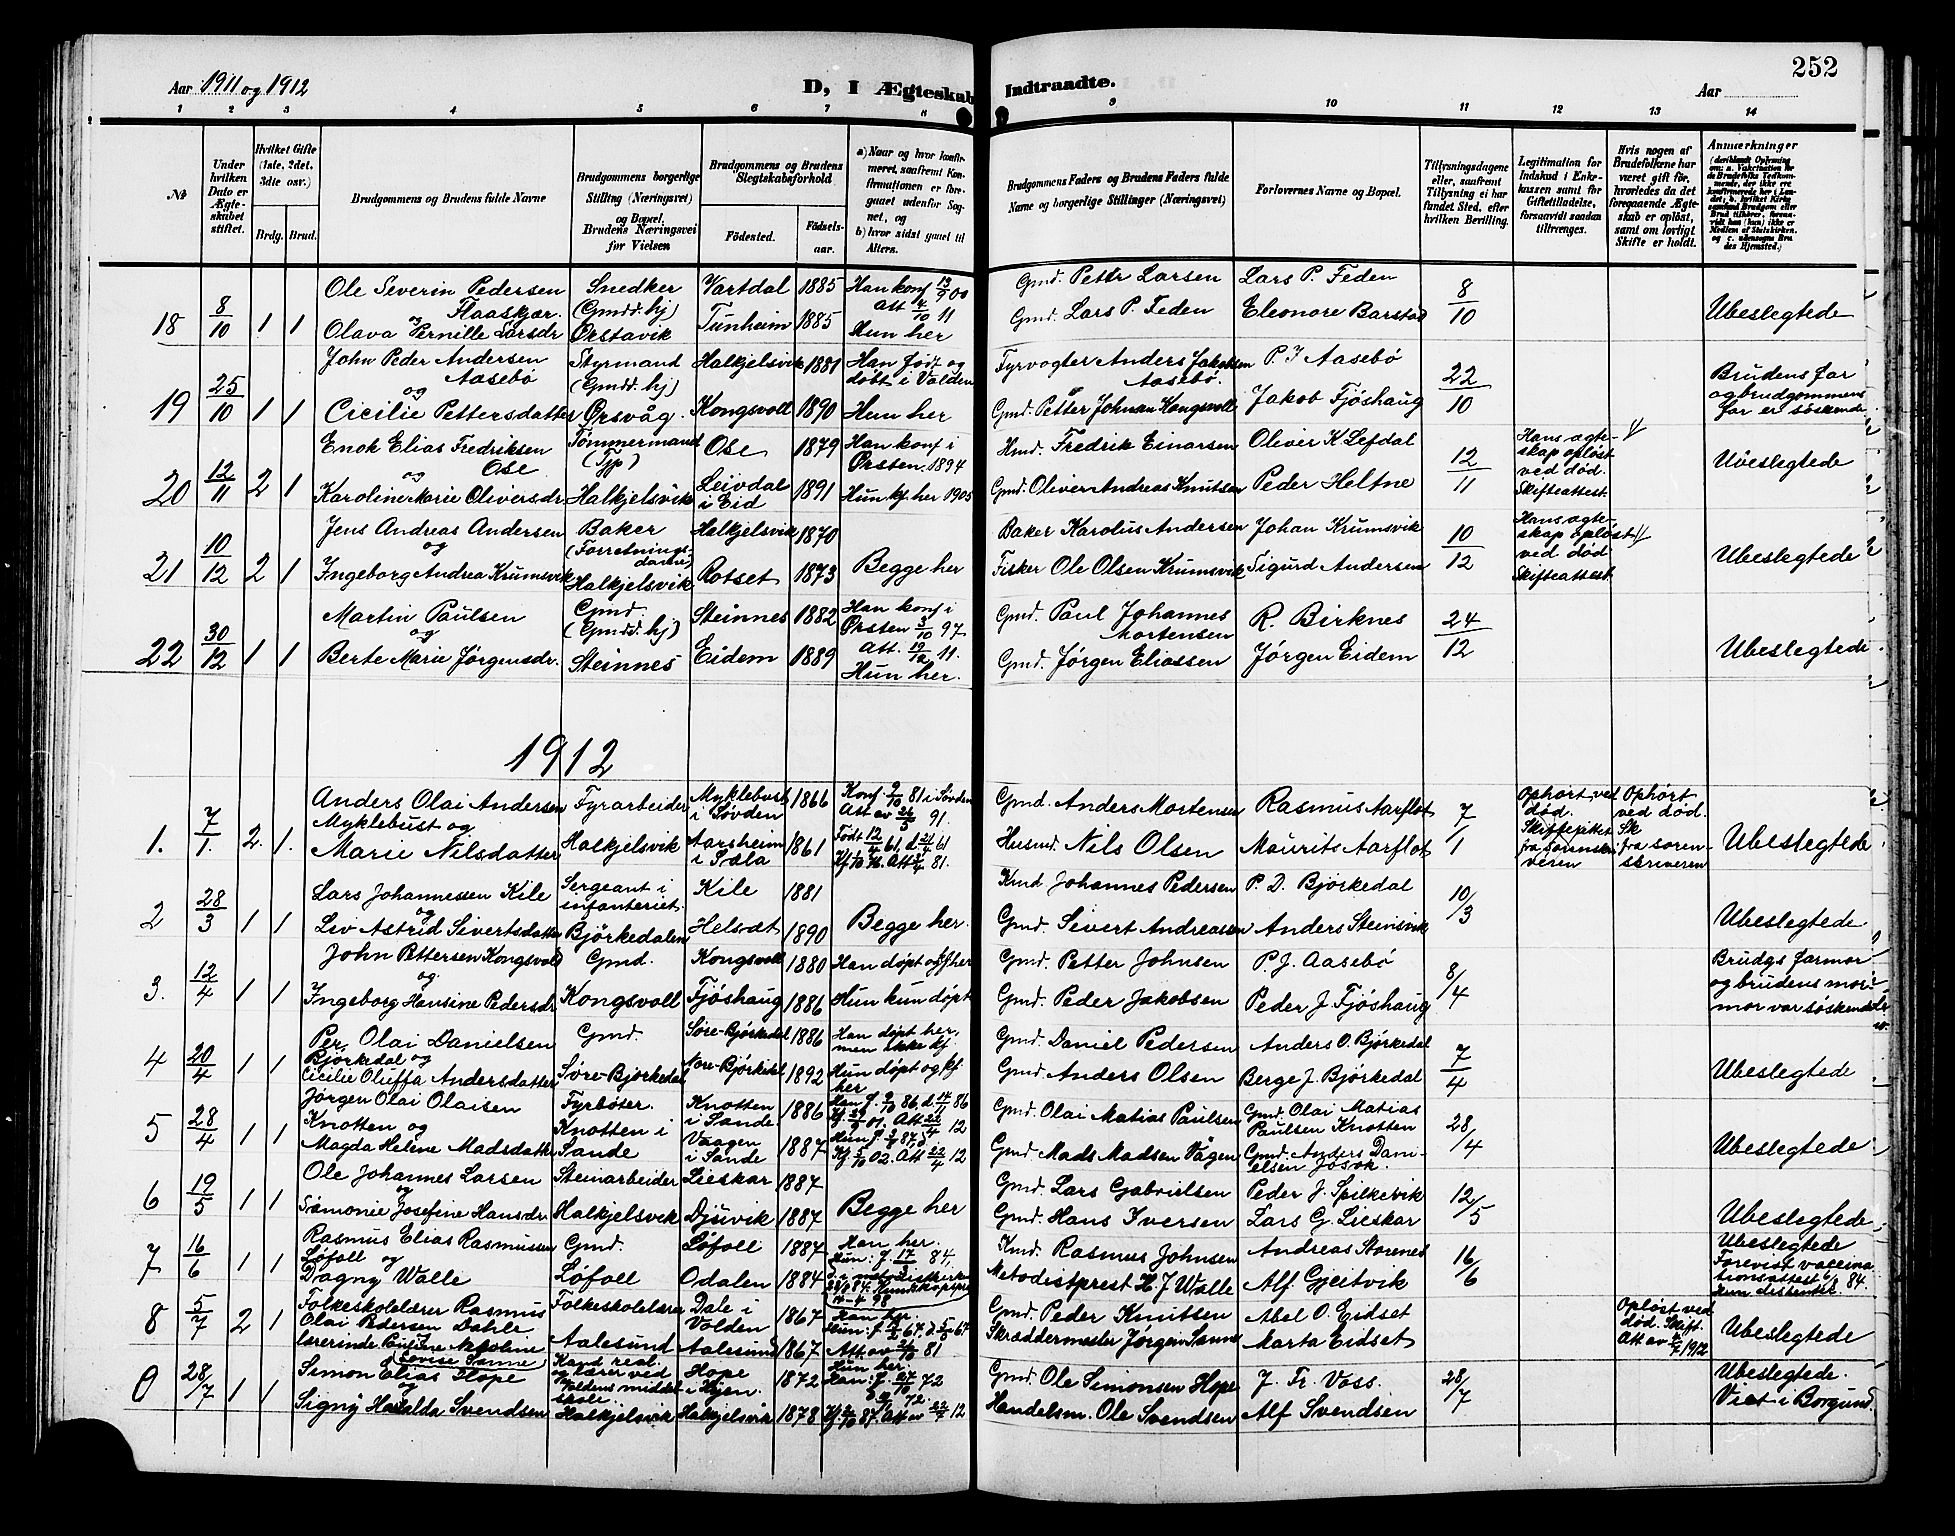 252
Aar 1911 og 1912
D, I Ægteskab Indtraadte.
Aar
1 2 3 4 5 6 7 8 9 10 11 12 13 14
№
Under hvilken Dato er Ægteskabet stiftet.
Hvilket Gifte (1ste, 2det, 3die osv.)
Brdg. Brud.
Brudgommens og Brudens fulde Navne
Brudgommens borgerlige Stilling (Næringsvei) og Bopæl, Brudens Næringsvei før Vielsen
Brudgommens og Brudens Slegtskabsforhold
Fødested.
Fødselsaar.
a) Naar og hvor konfirmeret, saafremt Konfirmationen er foregaaet udenfor Sognet, og
b) hvor sidst gaaet til Alters.
Brudgommens Faders og Brudens Faders fulde Navne og borgerlige Stillinger (Næringsvei)
Forlovernes Navne og Bopæl.
Tillysningsdagene eller, saafremt Tillysning ei har fundet Sted, efter hvilken Bevilling.
Legitimation for Indskud i Enkekassen samt for Giftetilladelse, forsaavidt saadan tiltrænges.
Hvis nogen af Brudefolkene har været gift før, hvorledes da det foregaaende Ægteskab er opløst, samt om lovligt Skifte er holdt.
Anmærkninger
18 8/10 1 1
Ole Severin Pedersen Flaaskjær
og
Olava Pernille Larsdr
Snedker (Gmdd. hj) Ørstavik
Vartdal 1885
Tunheim 1885
Han konf 13/9 00
Att 4/10 11
Hun her
Gmd. Petter Larsen
Gmd. Lars P. Feden
Lars P. Feden
Eleonore Barstad
8/10
Ubeslegtede
19 25/10 1 1
John Peder Andersen Aasebö
og
Cicilie Pettersdatter
Styrmand (Gmdd. hj) Ørsvåg.
Halkjelsvik 1881
Kongsvoll 1890
Han født og døbt i Volden
Hun her
Fyrvogter Anders Jakobsen Aasebö.
Gmd. Petter Johnan Kongsvoll
P. J Aasebö
Jakob Fjöshaug
22/10
Brudens far og brudgommens far er søskende
20 12/11 2 1
Enok Elias Fredriksen Ose
og
Karoline Marie Oliversdr
Tømmermand (Tjp) Halkjelsvik
Ose 1879
Leivdal i Eid 1891
Han konf i Ørsten 1894
Hun kf her 1905
Hmd. Fredrik Einarsen
Gmd. Oliver Andreas Knutsen
Oliver K Lefdal
Peder Heltne
12/11
Hans ægteskap opløst ved død. Skifteattest
Ubeslegtede
21 10/12 2 1
Jens Andreas Andersen
og
Ingeborg Andrea Krumsvik
Baker (Forretningsdanke) Halkjelsvik
Halkjelsvik 1870
Rotset 1873
Begge her
Baker Karolus Andersen
Fisker Ole Olsen Krumsvik
Johan Krumsvik
Sigurd Andersen
10/12
Hans ægteskap opløst ved død Skifteattest
Ubeslegtede
22 30/12 1 1
Martin Paulsen
og
Berte Marie Jørgensdr.
Gmd. (Gmdd. hj) Steinnes
Steinnes 1882
Eidem 1889
Han konf i Ørsten 3/10 97
Att. 19/12 11.
Hun her.
Gmd. Paul Johannes Mortensen
Gmd. Jørgen Eliassen
R. Birknes
Jørgen Eidem
24/12
Ubeslegtede
1912
1. 7/1. 2. 1.
Anders Olai Andersen Myklebust og
Marie Nilsdatter
Fyrarbeider Halkjelsvik
Myklebust i Søvden 1866
Aarsheim i Sæla 1861
Konf. 9/10 81 i Søvden
Att av 26/3 91.
Født 12/4 61, d. 21/4 61
Gmd. Anders Mortensen
Husmd. Nils Olsen
Rasmus Aarflot
Maurits Aarflot
7/1
Ophørt ved død. Skifteattest fra sorenskriveren
Ophørt ved død. Sk fra sorenskriveren
Ubeslegtede
2 28/3 1 1
Lars Johannessen Kile
og
Liv Astrid Sivertsdatter
Sergeant i infanteriet. Bjørkedalen
Kile 1881
Helset 1890
Begge her.
Kmd Johannes Pedersen
Gmd. Sivert Andreassen
P. D. Bjørkedal
Anders Steinsvik
10/3
Ubeslegtede
3. 12/4 1 1
John Pettersen Kongsvoll
og
Ingeborg Hansine Pedersdr
Gmd. Kongsvoll
Kongsvoll 1880
Fjöshaug 1886
Han døpt og kf her
Hun kun døpt
Gmd. Petter Johnsen
Gmd. Peder Jakobsen
P. J. Aasebö
Peder J. Fjöshaug
8/4
Brudgs farmor og brudens mormor var søskende
4 20/4 1 1
Per Olai Danielsen Bjørkedal og
Cicilie Oluffa Andersdatter
Gmd. Søre-Bjørkedal
Søre-Bjørkedal 1886
Nore-Bjørkedal 1892
Han døpt her, men ikke kf.
Hun døpt og kf. her
Gmd. Daniel Pedersen
Gmd. Anders Olsen
Anders O. Bjørkedal
Berge J. Bjørkedal
7/4
Ubeslegtede
5 28/4 1 1
Jørgen Olai Olaisen Knotten og
Magda Helene Madsdatter
Fyrbøter. Knotten i Sande
Knotten i Sande 1886
Vaagen i Sande 1887
Han f. 9/10 86. d. 14/11 86
Kf. 29/9 01. Att 22/4 12
Kf. 5/10 02. Att 22/4 12
Gmd. Olai Matias Paulsen
Gmd. Mads Madsen Vågen
Gmd. Olai Matias Paulsen Knotten
Gmd. Anders Danielsen Jøsok.
28/4
Ubeslegtede
6 19/5 1 1
Ole Johannes Larsen
og
Sømonie Josefine Hansdr
Steinarbeider Halkjelsvik
Lieskar 1887
Djuvik 1887
Begge her
Gmd. Lars Gabrielsen
Gmd. Hans Iversen
Peder J. Spilkevik
Lars G. Lieskar
12/5
Ubeslegtede
7 16/6 1 1
Rasmus Elias Rasmussen Løfoll og
Dagny Walle
Gmd. Løfoll
Løfoll 1887
Odalen 1884
Han her.
Hun: f. 17/2 84,
Kmd. Rasmus Johnsen
Metodistprest H. J Walle
Andreas Storenes
Alf Gjeitvik
16/6
Ubeslegtede
Forevist vaccinationsattest
Hun dissenter.
8 5/7 2 1
Folkeskolelærer Rasmus Olai Pedersen Dahle
lærerinde Pauline Nikoline Lovise Sanne
Folkeskolelærer Aalesund
Dale i Volden 1867
Aalesund 1867
Han her
Att. av 26/10 81
Gmd. Peder Knutsen
Skræddermester Jørgen Sanne
Abel O. Eidset
Marta Eidset
Opløst ved død. Skift. Att av 4/7 1912
Ubeslegtede
0 28/7 1 1
Simon Elias Hope
og
Signy Haralda Svendsen
Kand real. og lærer ved Voldens middelskole Halkjelsvik
Hope i Hyen. 1872
Halkjelsvik 1878
Hun her.
Han: f. 27/10 72
Kf. 2/10 87. Att av 22/7 12
Gmd. Ole Simonsen Hope
Handelsm. Ole Svendsen
J. Fr. Voss.
Alf Svendsen
28/7
Ubeslegtede.
Viet i Borgund